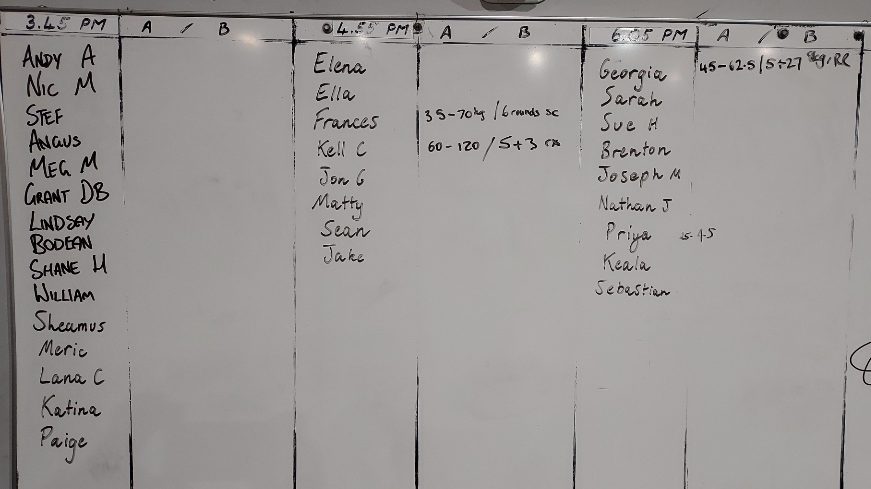 3.45 PM A / B
ANDY A
NIC M
STEF
ANGUS
MEG M
GRANT DB
LINDSAY
BODEAN
SHANE H
WILLIAM
Sheamus
Meric
Lana C
Katina
Paige
4.55 PM A / B
Elena
Ella
Frances 35-70kg / 6 rounds sc
Kell C 60-120 / 5+3 rx
Jon G
Matty
Sean
Jake
6.05 PM A / B
Georgia 45-62.5 / 5+27 8kg, RR
Sarah
Sue H
Brenton
Joseph M
Nathan J
Priya
Keala
Sebastian